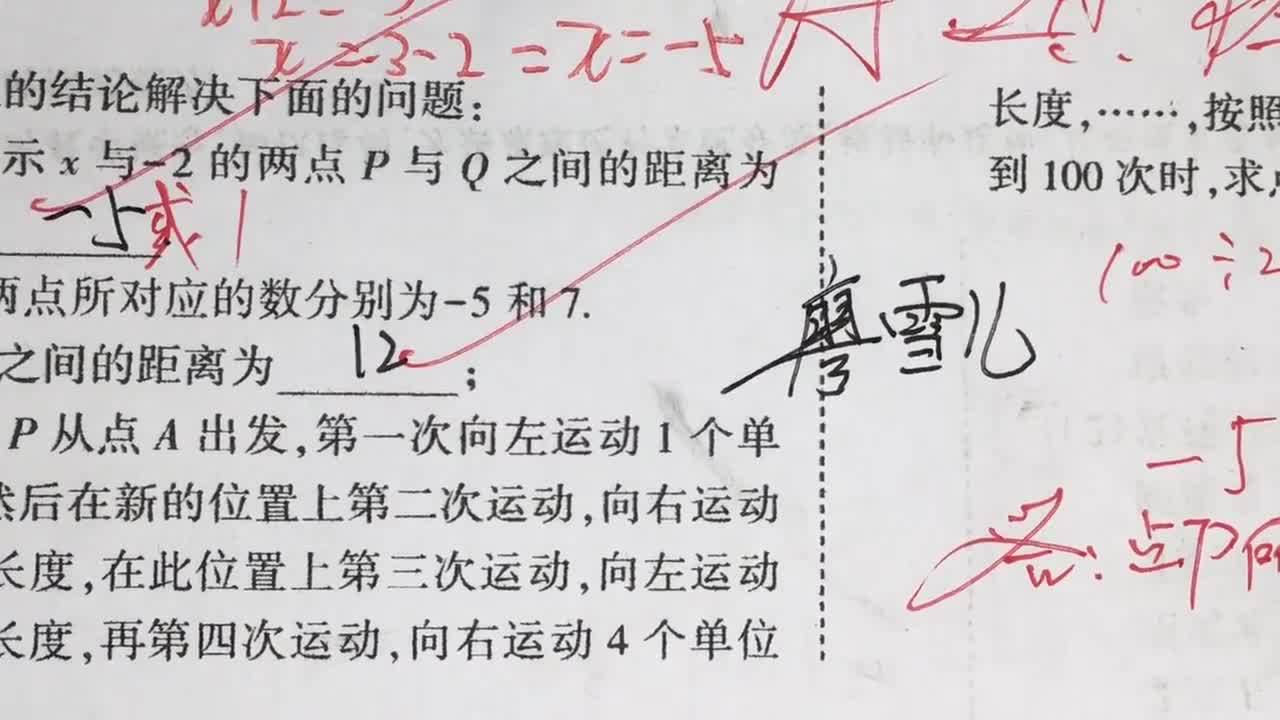 x+2=3
x=3-2=x=-5
的结论解决下面的问题:
示 x 与-2 的两点 P 与 Q 之间的距离为
-5或1
两点所对应的数分别为-5 和 7.
之间的距离为 12 ;
P 从点 A 出发,第一次向左运动 1 个单
然后在新的位置上第二次运动,向右运动
长度,在此位置上第三次运动,向左运动
长度,再第四次运动,向右运动 4 个单位
雪儿
长度,……,按照
到 100 次时,求
100÷2
-5
答:点P向